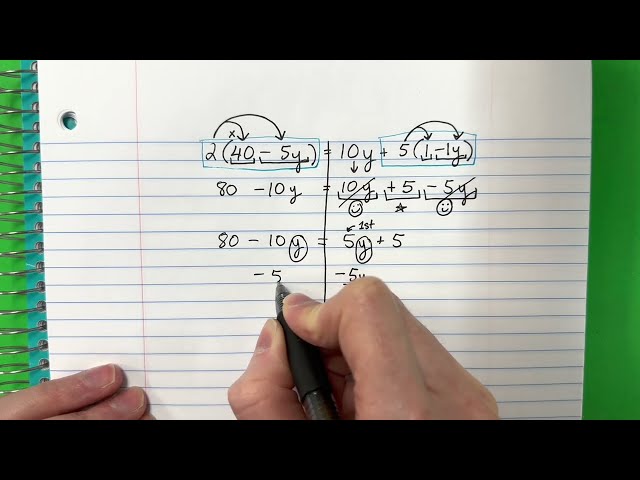 x
2(40 - 5y) = 10y + 5(1 - 1y)
80 - 10y = 10y + 5 - 5y
1st
80 - 10y = 5y + 5
- 5 - 5y